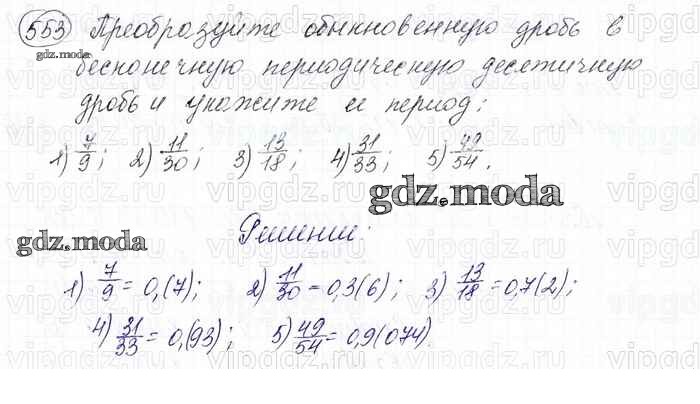 553 Преобразуйте обыкновенную дробь в
gdz.moda
бесконечную периодическую десятичную
дробь и укажите её период:
1) 7/9; 2) 11/30; 3) 13/18; 4) 31/33; 5) 49/54.
gdz.moda
gdz.moda
Решение:
1) 7/9 = 0,(7); 2) 11/30 = 0,3(6); 3) 13/18 = 0,7(2);
4) 31/33 = 0,(93); 5) 49/54 = 0,9(074).